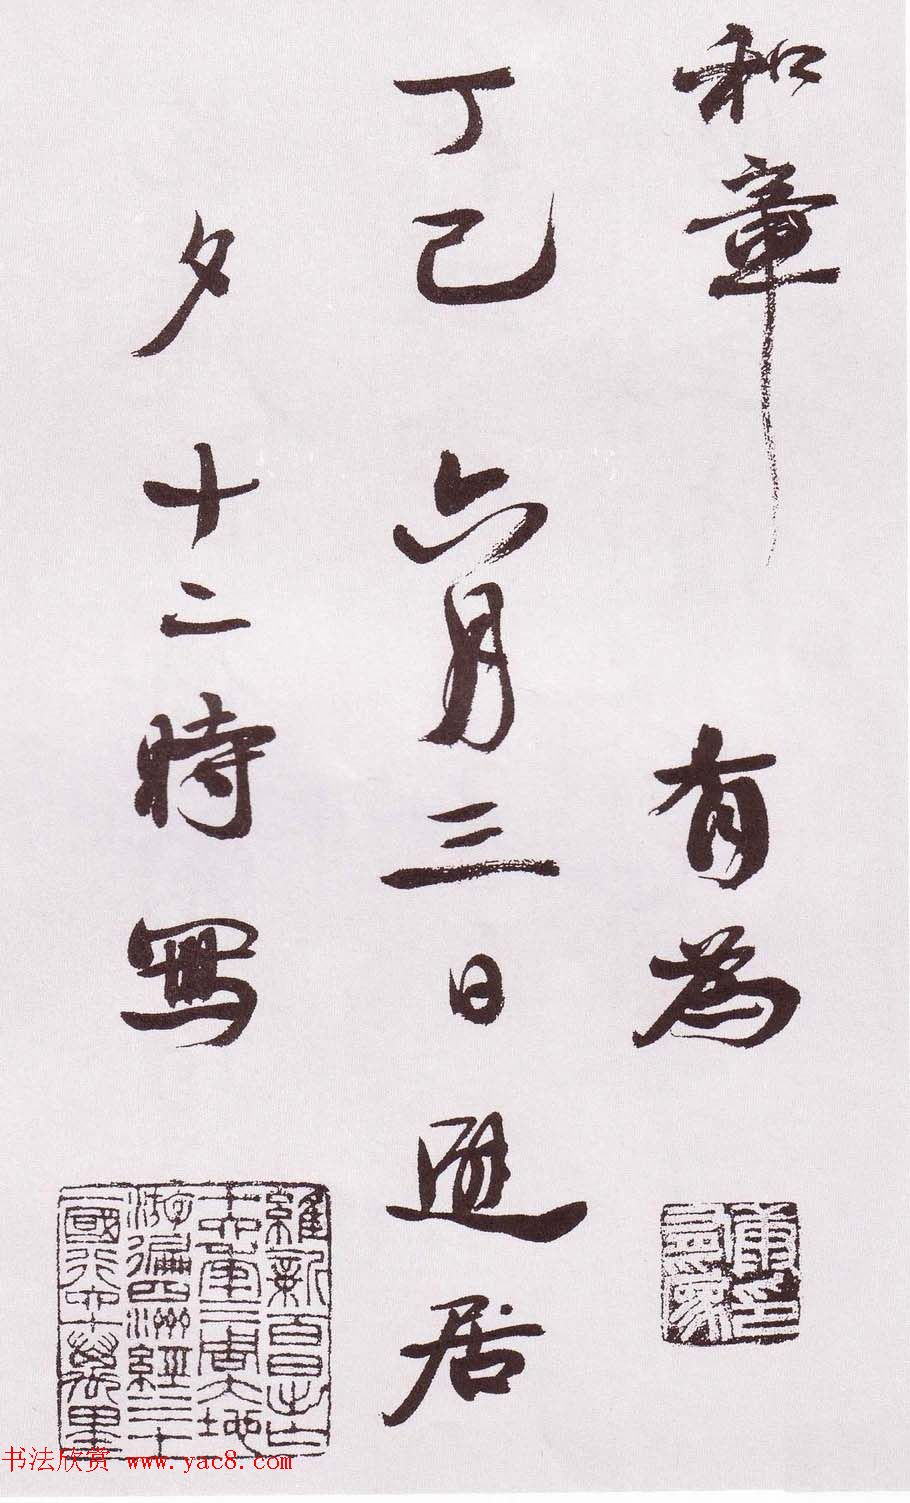 和章 有為
丁巳 六月三日 居
夕 十二時寫
康有為印
維新百日出亡
十六年三周大地
游遍四洲經三十
一國行六十萬里
书法欣赏 www.yac8.com